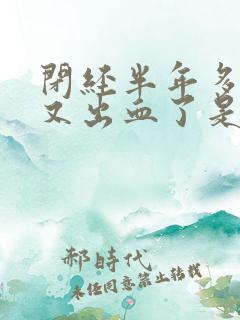 閉經半年多
又出血了是
郝時代
未經同意禁止轉載